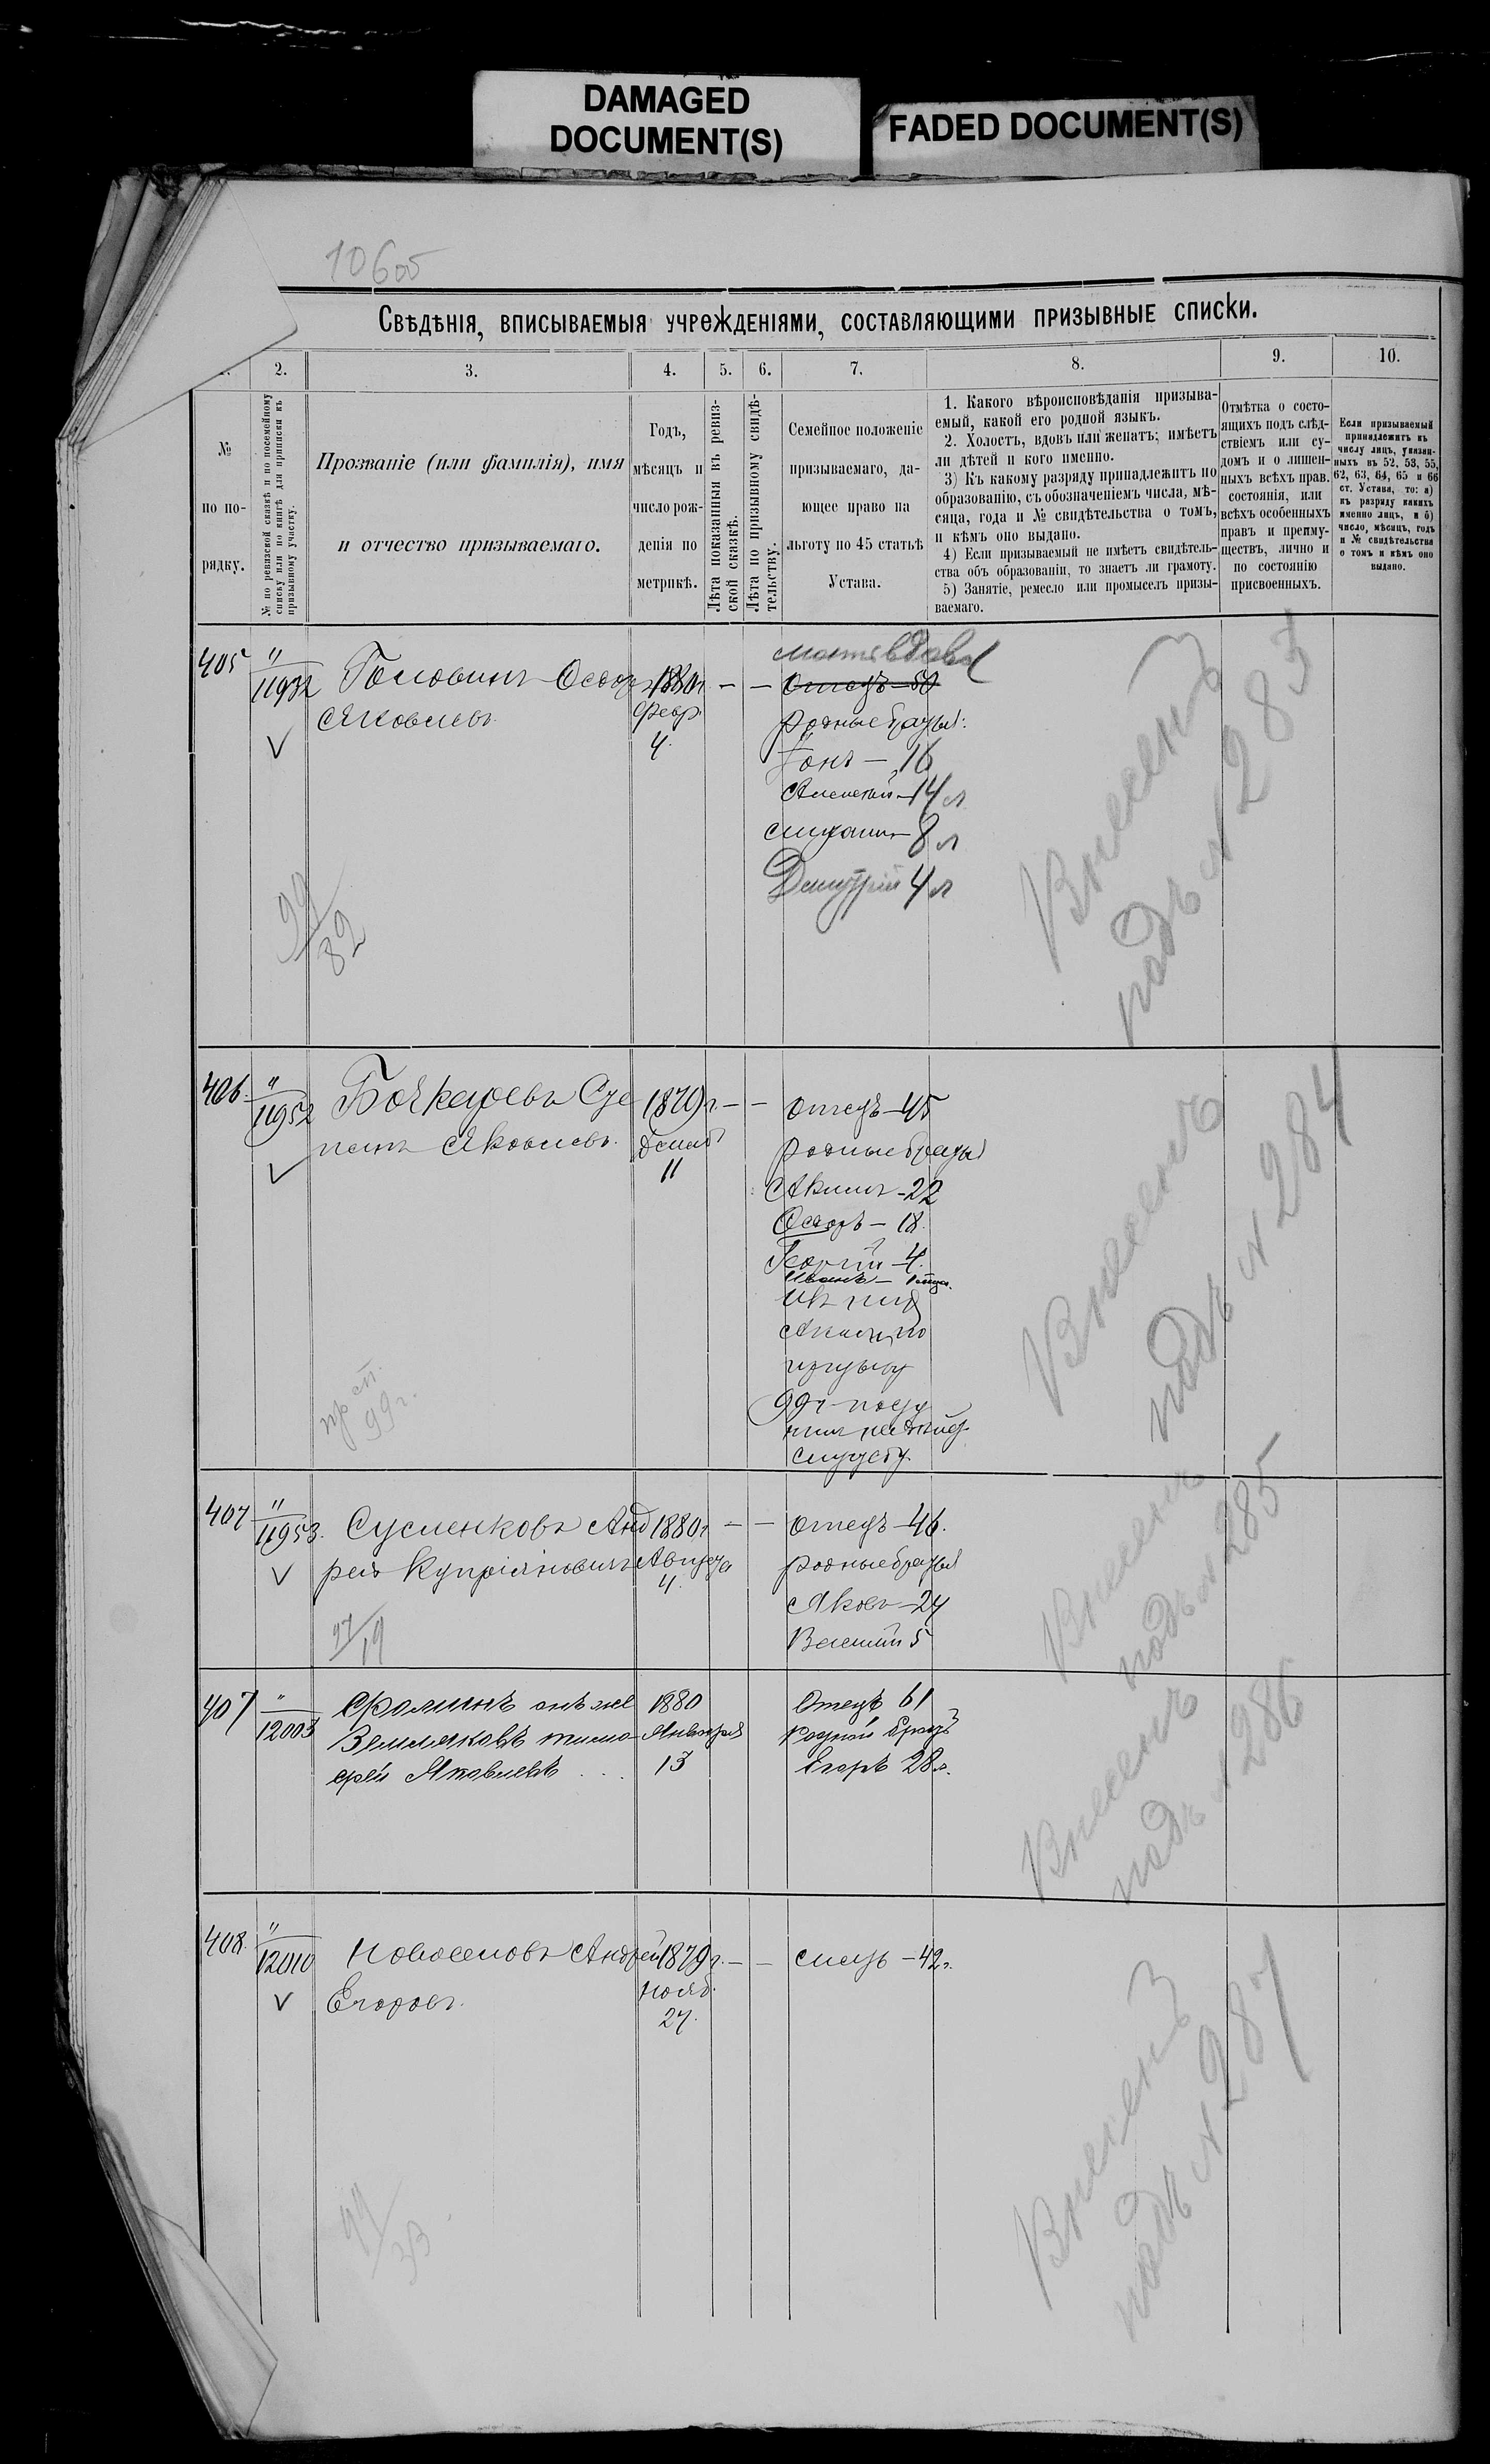 DAMAGED
DOCUMENT(S)
FADED DOCUMENT(S)
10605
Свѣдѣнія, вписываемыя учрежденіями, составляющими призывные списки.
2.
3.
4.
5.
6.
7.
8.
9.
10.
№
по по-
рядку.
№ по ревизской сказкѣ и по посемейному
списку или по книгѣ для приписки къ
призывному участку.
Прозваніе (или фамилія), имя
и отчество призываемаго.
Годъ,
мѣсяцъ и
число рож-
денія по
метрикѣ.
Лѣта показанныя въ ревиз-
ской сказкѣ.
Лѣта по призывному свидѣ-
тельству.
Семейное положеніе
призываемаго, да-
ющее право на
льготу по 45 статьѣ
Устава.
1. Какого вѣроисповѣданія призыва-
емый, какой его родной языкъ.
2. Холостъ, вдовъ или женатъ; имѣетъ
ли дѣтей и кого именно.
3) Къ какому разряду принадлежитъ по
образованію, съ обозначеніемъ числа, мѣ-
сяца, года и № свидѣтельства о томъ,
и кѣмъ оно выдано.
4) Если призываемый не имѣетъ свидѣтель-
ства объ образованіи, то знаетъ ли грамоту.
5) Занятіе, ремесло или промыселъ призы-
ваемаго.
Отмѣтка о состо-
ящихъ подъ слѣд-
ствіемъ или су-
домъ и о лишен-
ныхъ всѣхъ прав.
состоянія, или
всѣхъ особенныхъ
правъ и преиму-
ществъ, лично и
по состоянію
присвоенныхъ.
Если призываемый
принадлежитъ къ
числу лицъ, указан-
ныхъ въ 52, 53, 55,
62, 63, 64, 65 и 66
ст. Устава, то: а)
къ разряду какихъ
именно лицъ, и б)
число, мѣсяцъ, годъ
и № свидѣтельства
о томъ и кѣмъ оно
выдано.
405 " Головинъ Ѳедоръ 1880г. — — мать вдова
11932 Яковлевъ Февр. Отецъ—50
4. родные братья:
Іонъ — 16
Алексѣй—14 л
Михаилъ—8 л
Дмитрій 4 л
99/82
Внесенъ
подъ № 283
406. " Бочкаревъ Сте 1879г. — — отецъ—45
11952 панъ Яковлевъ. Декаб родные братья
11 Акимъ-22
Ѳедоръ — 18.
Георгій 4.
Иванъ —
Акимъ по
призыву
99г посту
службу.
пр. сп.
99 г.
Внесенъ
подъ № 284
407 " Сусленковъ Анд 1880г — — отецъ—46.
11953. рей Купріяновичъ Августа родные братья
4. Яковъ—24
Василій 5
97/19
Внесенъ
подъ № 285
407 " Фоминъ онъ же 1880 Отецъ 61
12003 Земляковъ тимо- Января родной братъ
фей Яковлевъ 13 Егоръ 28 л.
Внесенъ
подъ № 286
408. " Новоселовъ Андрей 1879г. — — отецъ —42л.
12010 Егоровъ. Нояб.
27.
Внесенъ
подъ № 287